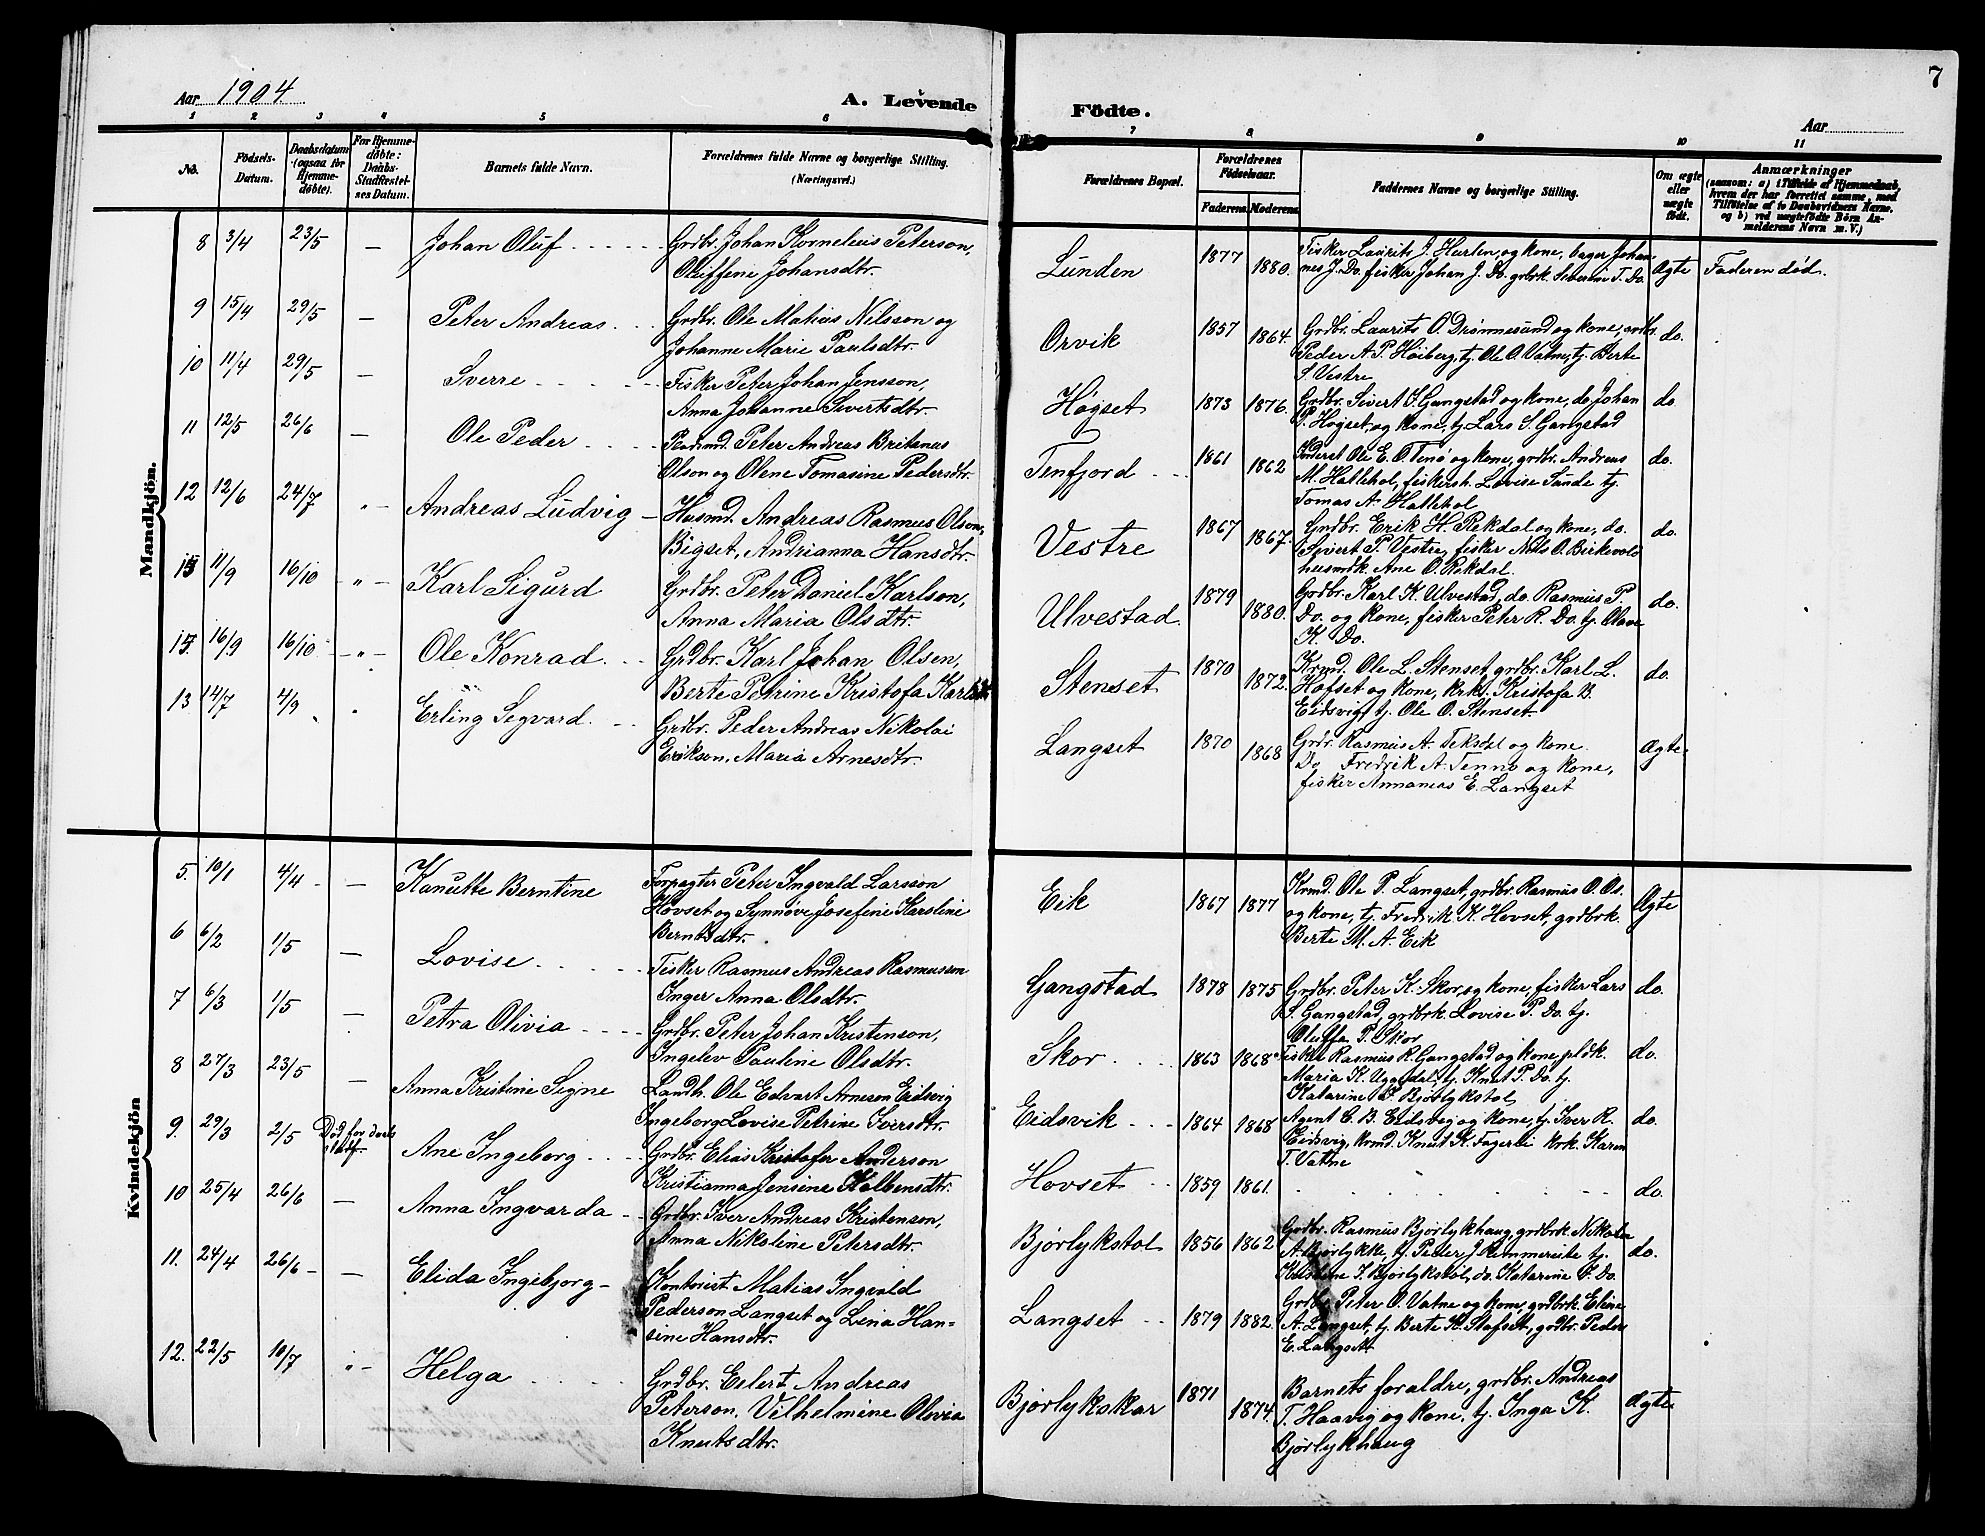 7
Aar 1904
A. Levende
Födte.
Aar
1 2 3 4 5 6 7 8 9 10 11
No.
Födsels-
Datum.
Daabsdatum
(ogsaa for
Hjemme-
döbte).
For Hjemme-
döbte:
Daabs-
Stadfæstel-
ses Datum.
Barnets fulde Navn.
Forældrenes fulde Navne og borgerlige Stilling.
(Næringsvei.)
Forældrenes Bopæl.
Forældrenes
Födselsaar.
Faderens. Moderens.
Faddernes Navne og borgerlige Stilling.
Om ægte
eller
uægte
födt.
Anmærkninger
(saasom: a) i Tilfælde af Hjemmedaab,
hvem der har forrettet samme, med
Tilföielse af to Daabsvidners Navne,
og b) ved uægtefödte Börn An-
melderens Navn m. V.)
Mandkjön.
8 3/4 23/5 — Johan Oluf Grdbr. Johan Kornelius Peterson,
Oliffine Johansdtr.
Lunden 1877 1880. Fisker Laurits J. Hurlen, og kone, bager Johan
nes J. Do. fisker Johan J. Do. grbrk. Severine T. Do.
Ægte Faderen død.
9 15/4 29/5 — Peter Andreas Grdbr. Ole Matias Nilsson og
Johanne Marie Paulsdtr.
Orvik 1857 1864. Grdbr. Laurits O. Drønnesund og kone, grdbr.
Peder A. P. Høiberg, tj. Ole O. Vatne, tj. Berte
S. Vestre
do.
10 11/4 29/5 — Sverre Fisker Peter Johan Jensson,
Anna Johanne Sivertsdtr.
Høgset 1873 1876. Grdbr. Sivert S. Gangstad og kone, do Johan
P. Høgset, og kone, tj. Lars S. Gangstad
do.
11 12/5 26/6 — Ole Peder Pladsmd. Peter Andreas Britanus
Olson og Olene Tomasine Pedersdtr.
Tenfjord 1861 1862 Ole E. O. Tenø og kone, grdbr. Andreas
M. Hallehol, fiskersh. Lovise Sunde tj.
Tomas A. Hallehol
do.
12 12/6 24/7 " — Andreas Ludvig — Husmd. Andreas Rasmus Olson
Bigset, Andrianna Hansdtr.
Vestre 1867 1867. Grdbr. Erik H. Rekdal og kone, do.
Sivert P. Vestre, fisker Nils O. Birkevold
husmdk. Ane O. Rekdal.
do.
15 11/9 16/10 — " — Karl Sigurd Grdbr. Peter Daniel Karlson,
Anna Maria Olsdtr.
Ulvestad 1879 1880. Grdbr. Karl K. Ulvestad, do. Rasmus P.
Do. og kone, fisker Peter R. Do. tj. Olave
K. Do.
do.
15 16/9 16/10 — " — Ole Konrad Grdbr. Karl Johan Olsen,
Berte Petrine Kristofa Karlsdtr
Stenset 1870 1872. Krmd. Ole L. Stenset, grdbr. Karl L.
Hofset og kone, krk. Kristofa B.
Eidsvig, tj. Ole O. Stenset.
do.
13 14/7 4/9 " " Erling Segvard Grdbr. Peder Andreas Nikolai
Erikson, Maria Arnesdtr.
Langset 1870 1868 Grdr. Rasmus A. Teksdal og kone
Do Fredrik A. Tennø og kone,
fisker Annanias E. Langset
Ægte
Kvindekjön
5. 10/1 4/4 — Kanutte Berntine Forpagter Peter Ingvald Larsson
Hovset og Synnøve Josefine Karoline
Berntsdtr.
Eik 1867 1877 Krmd. Ole P. Langset, grdbr. Rasmus O. Os.
og kone, tj. Fredrik K. Hovset, grdbrk.
Berte M. A. Eik
Ægte
6 6/2 1/5 — Lovise Fisker Rasmus Andreas Rasmusson
Inger Anna Olsdtr.
Gangstad 1878 1875 Grdbr. Peter K. Skor, og kone, fisker Lars
S. Gangstad, grdbrk. Lovise P. Do. tj.
Oluffa P. Skor
do.
7 6/3 1/5 — Petra Olivia Grdbr. Peter Johan Kristenson,
Ingelev Pauline Olsdtr.
Skor 1863 1868 Fisker Rasmus R. Gangstad og kone, pldk.
Maria K. Uggedal, tj. Knut P. Do. tj.
Katarine P. Bjørlykstol
do.
8 27/3 23/5 — Anna Kristine Signe Landh. Ole Edvart Arneson Eidsvig
Ingeborg Lovise Petrine Iversdtr.
Eidsvik 1864 1868 Agent C. B. Eidsvig og kone, tj. Iver R.
Eidsvig, krmd. Knut K. Fagerli krk. Karen
T. Vatne
do.
9. 29/3 2/5 Død før daabs
stadf. Ane Ingeborg Grdbr. Elias Kristofer Anderson
Kristianna Jensine Kolbensdtr.
Hovset 1859 1861. do.
10 25/4 26/6 — Anna Ingvarda Grdbr. Iver Andreas Kristenson,
Anna Nikoline Petersdtr.
Bjørlykstol 1856 1862 Grdbr. Rasmus Bjørlykhaug, grdbrk. Nikoline
A. Bjørlykke, tj. Peder J. Remmereite tj.
Kristine I. Bjørlykstøl, do. Katarine P. Do.
do.
11. 24/4 26/6 — — Elida Ingebjorg — Kontorist Matias Ingvald
Pederson Langset og Lina Han-
sine Hansdtr.
Langset 1879 1882. Grdbr. Peter O. Vatne og kone, grdbrk. Eline
A. Langset, tj. Berte K. Stafset, grdbr. Peder
E. Langset
12. 22/5 10/7 " — Helga Grdbr. Eilert Andreas
Peterson, Vilhelmine Olivia
Knutsdtr.
Bjørlykskar 1871 1874. Barnets foraldre, grdbr. Andreas
T. Haavig og kone, tj. Inga K.
Bjørlykhaug
Ægte